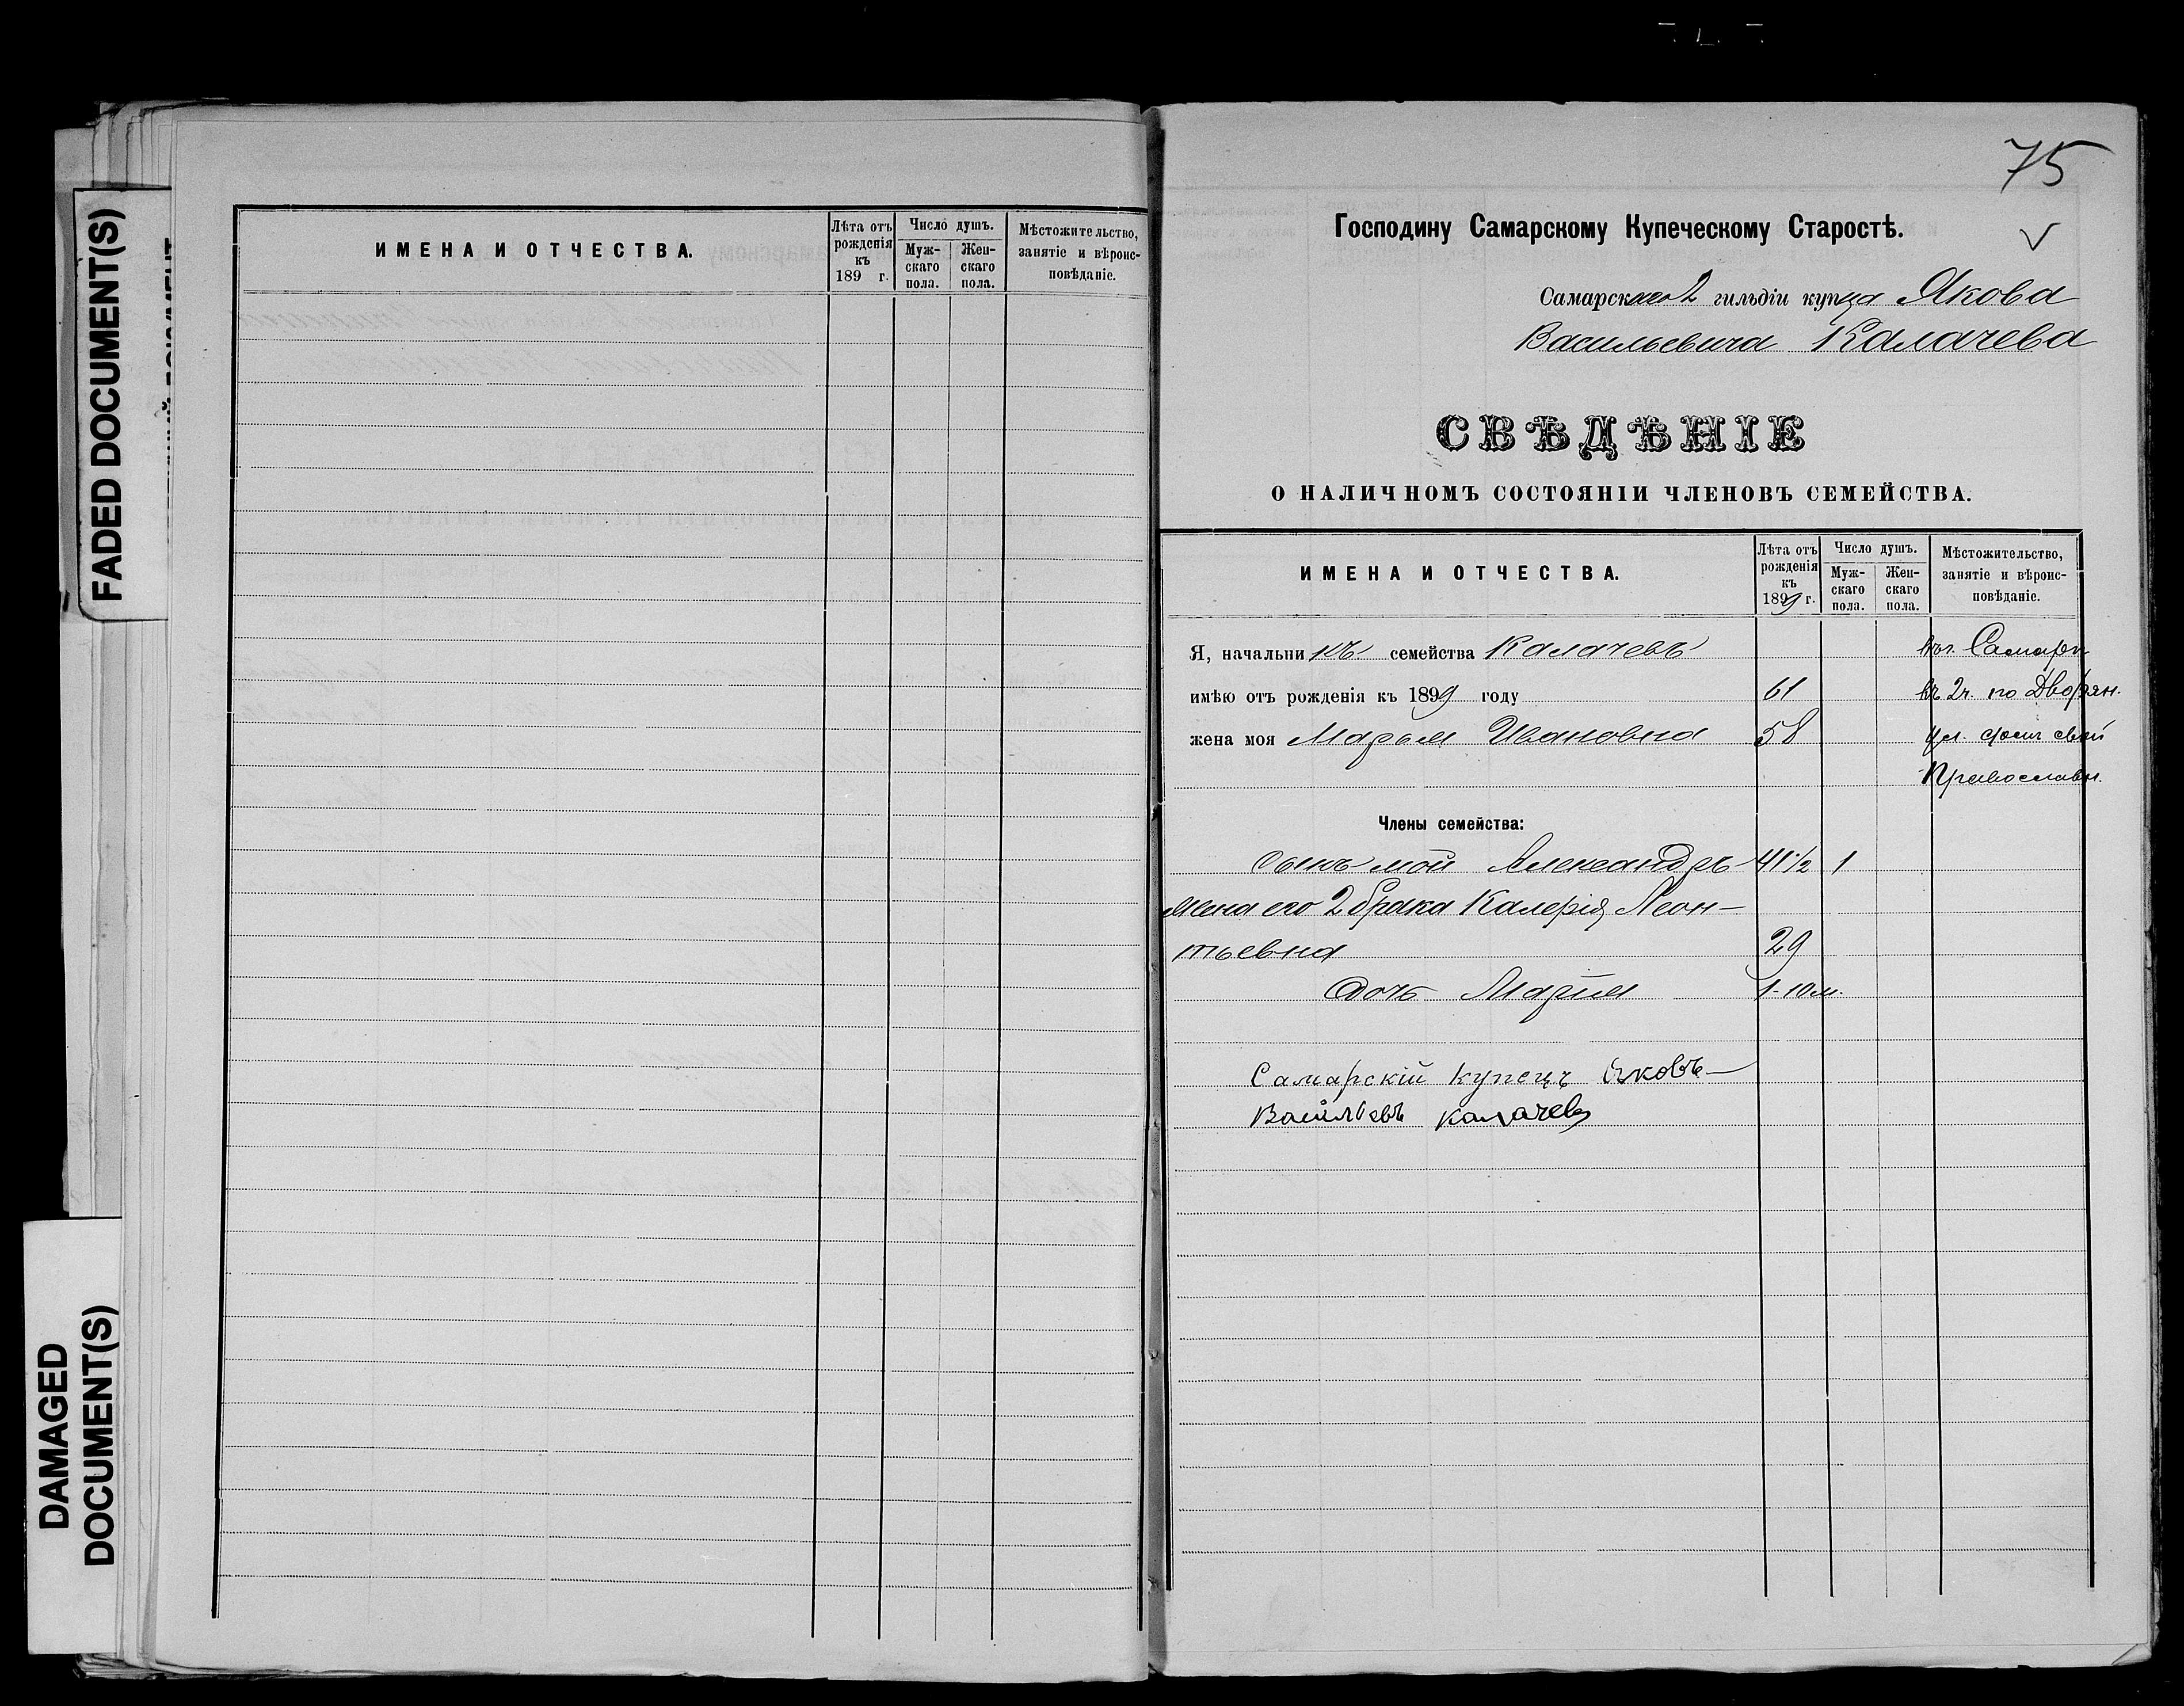 FADED DOCUMENT(S)
DAMAGED
DOCUMENT(S)
ИМЕНА И ОТЧЕСТВА.
Лѣта отъ рожденія къ 189 г.
Число душъ.
Мужскаго пола.
Женскаго пола.
Мѣстожительство, занятіе и вѣроисповѣданіе.
75
Господину Самарскому Купеческому Старостѣ.
Самарскаго 2 гильдіи купца Якова
Васильевича Калачева
СВѢДѢНІЕ
О НАЛИЧНОМЪ СОСТОЯНІИ ЧЛЕНОВЪ СЕМЕЙСТВА.
ИМЕНА И ОТЧЕСТВА.
Лѣта отъ рожденія къ 1899 г.
Число душъ.
Мужскаго пола.
Женскаго пола.
Мѣстожительство, занятіе и вѣроисповѣданіе.
Я, начальникъ семейства Калачевъ въ г. Самарѣ
имѣю отъ рожденія къ 1899 году 61 въ 2 ч. по Дворян.
жена моя Марья Ивановна 58 ул. домъ свой
Православн.
Члены семейства:
Сынъ мой Александръ 41 1/2 1
Жена его 2 брака Калерія Леон-
тьевна 29
Дочь Марія 1-10 м.
Самарскій купецъ Яковъ
Васильевъ Калачевъ